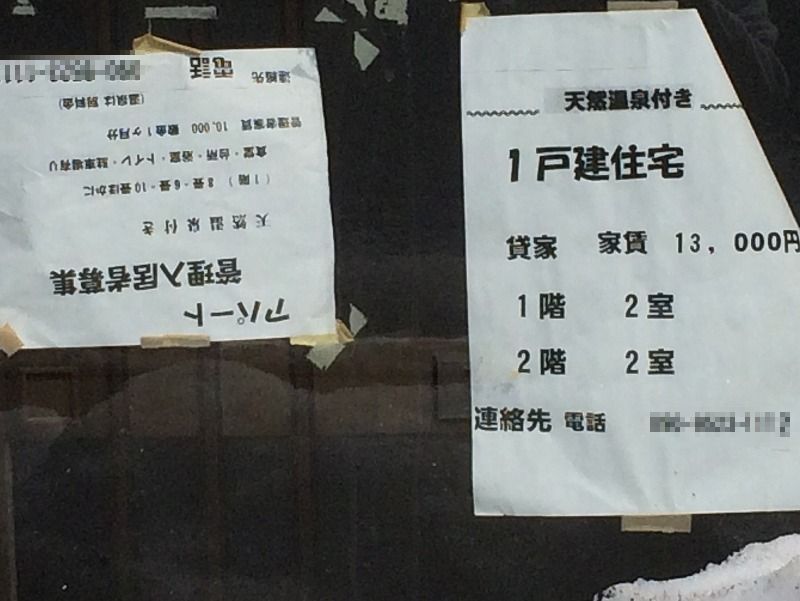 アパート
管理入居者募集
天然温泉付き
(1階) 8畳・6畳・10畳ほかに
食堂・台所・浴室・トイレ・駐車場有り
管理者家賃 10,000 敷金1ヶ月分
(温泉は別料金)
連絡先 電話
天然温泉付き
1戸建住宅
貸家 家賃 13,000円
1階 2室
2階 2室
連絡先 電話